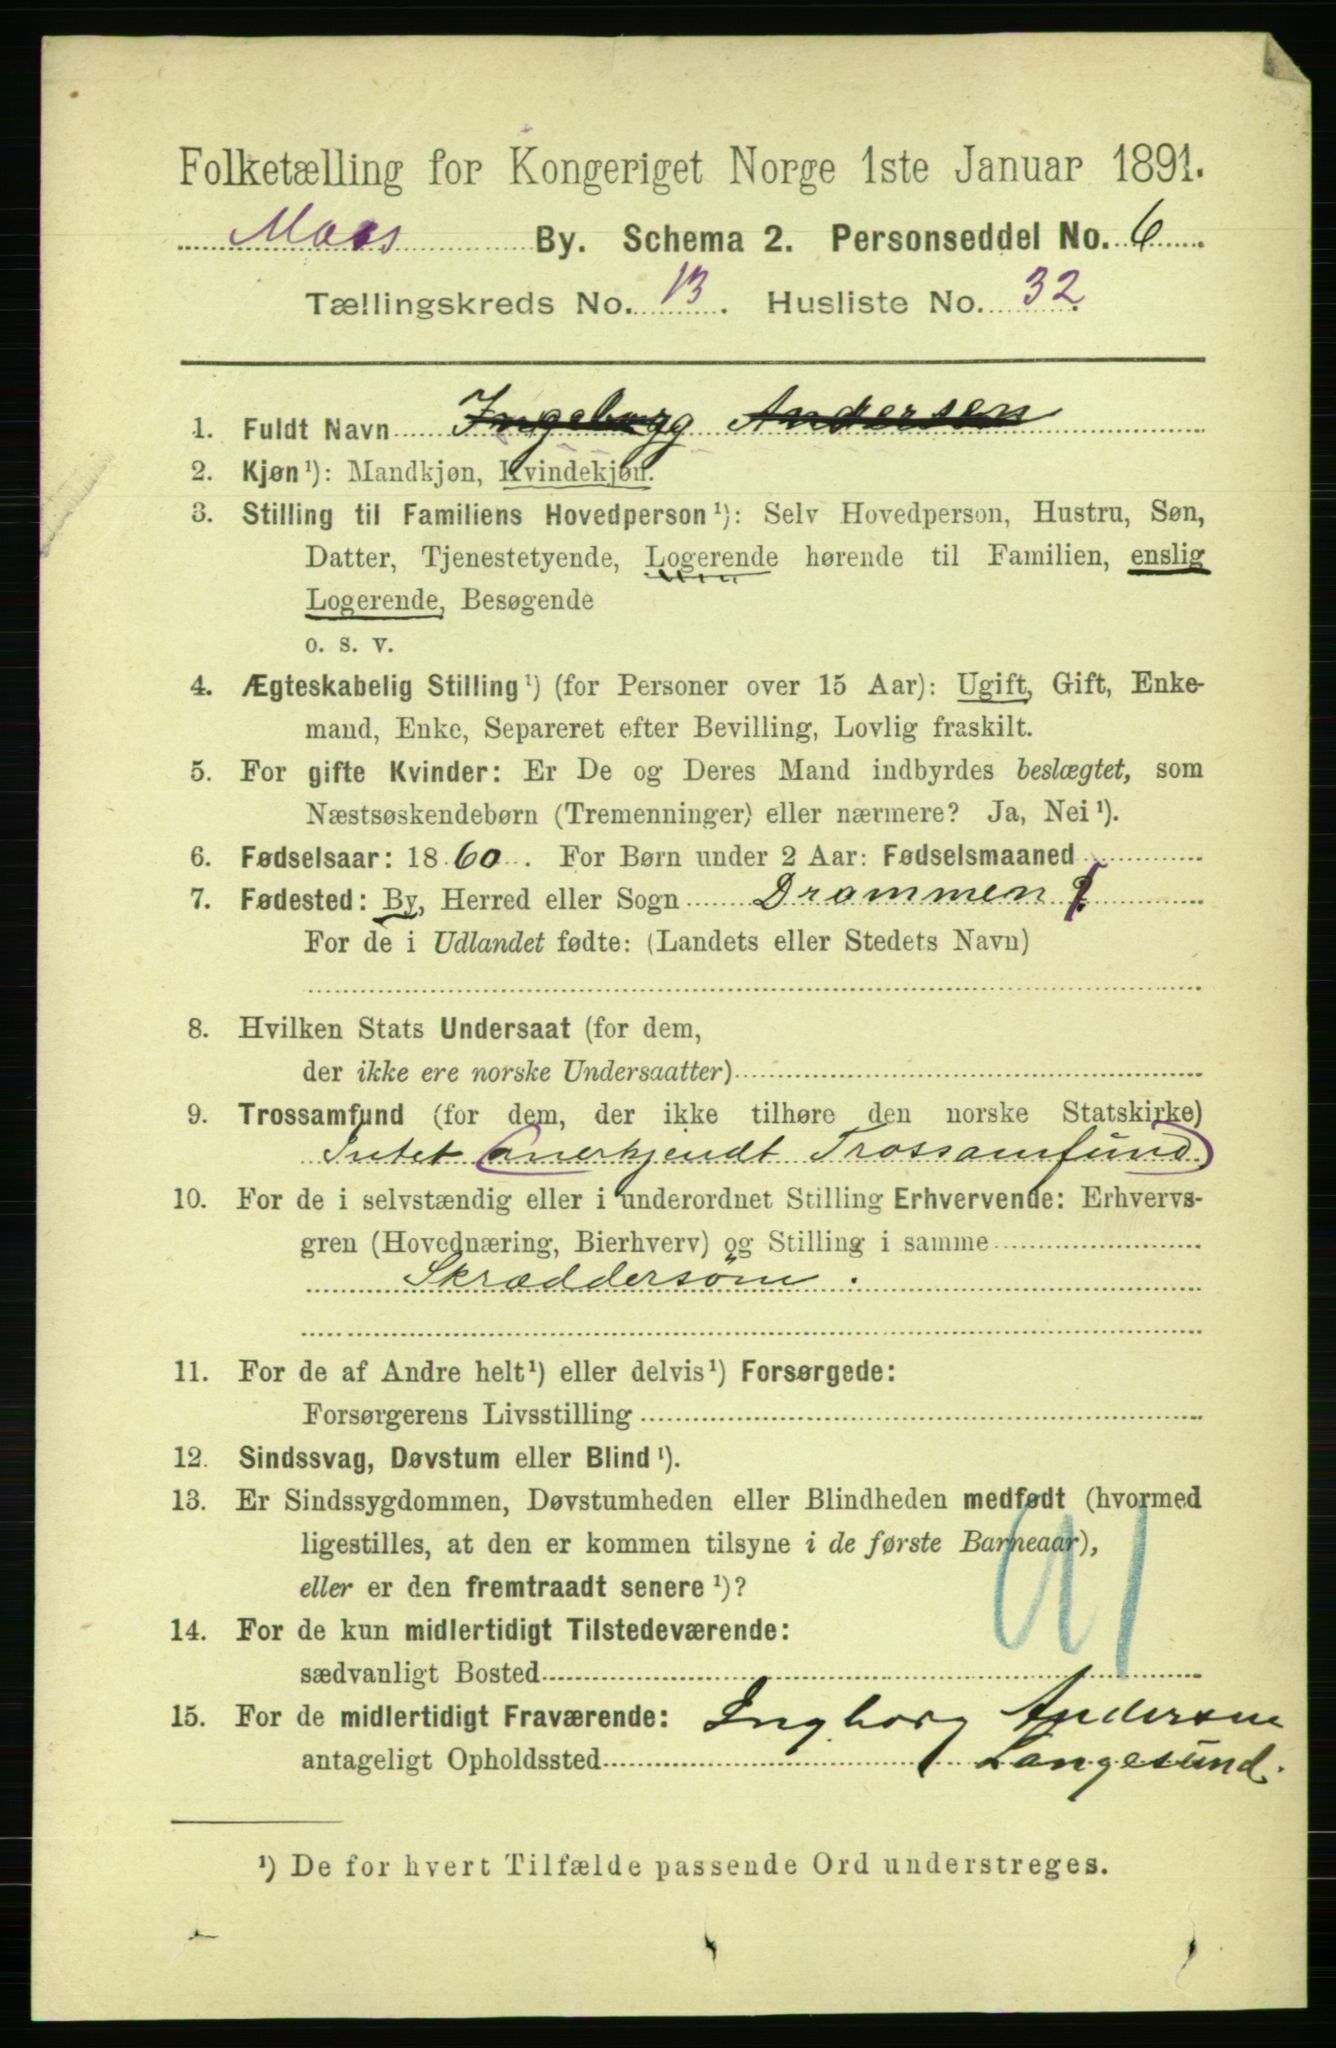 Folketælling for Kongeriget Norge 1ste Januar 1891.
Moss By. Schema 2. Personseddel No. 6
Tællingskreds No. 13. Husliste No. 32
1. Fuldt Navn Ingeborg Andersen
2. Kjøn¹): Mandkjøn, Kvindekjøn.
3. Stilling til Familiens Hovedperson¹): Selv Hovedperson, Hustru, Søn,
Datter, Tjenestetyende, Logerende hørende til Familien, enslig
Logerende, Besøgende
o. s. v.
4. Ægteskabelig Stilling¹) (for Personer over 15 Aar): Ugift, Gift, Enke-
mand, Enke, Separeret efter Bevilling, Lovlig fraskilt.
5. For gifte Kvinder: Er De og Deres Mand indbyrdes beslægtet, som
Næstsøskendebørn (Tremenninger) eller nærmere? Ja, Nei¹).
6. Fødselsaar: 1860. For Børn under 2 Aar: Fødselsmaaned
7. Fødested: By, Herred eller Sogn Drammen
For de i Udlandet fødte: (Landets eller Stedets Navn)
8. Hvilken Stats Undersaat (for dem,
der ikke ere norske Undersaatter)
9. Trossamfund (for dem, der ikke tilhøre den norske Statskirke)
Intet anerkjendt Trossamfund
10. For de i selvstændig eller i underordnet Stilling Erhvervende: Erhvervs-
gren (Hovednæring, Bierhverv) og Stilling i samme
Skræddersöm.
11. For de af Andre helt¹) eller delvis¹) Forsørgede:
Forsørgerens Livsstilling
12. Sindssvag, Døvstum eller Blind¹).
13. Er Sindssygdommen, Døvstumheden eller Blindheden medfødt (hvormed
ligestilles, at den er kommen tilsyne i de første Barneaar),
eller er den fremtraadt senere¹)?
14. For de kun midlertidigt Tilstedeværende:
sædvanligt Bosted
15. For de midlertidigt Fraværende: Ingborg Andersen
antageligt Opholdssted Langesund.
¹) De for hvert Tilfælde passende Ord understreges.